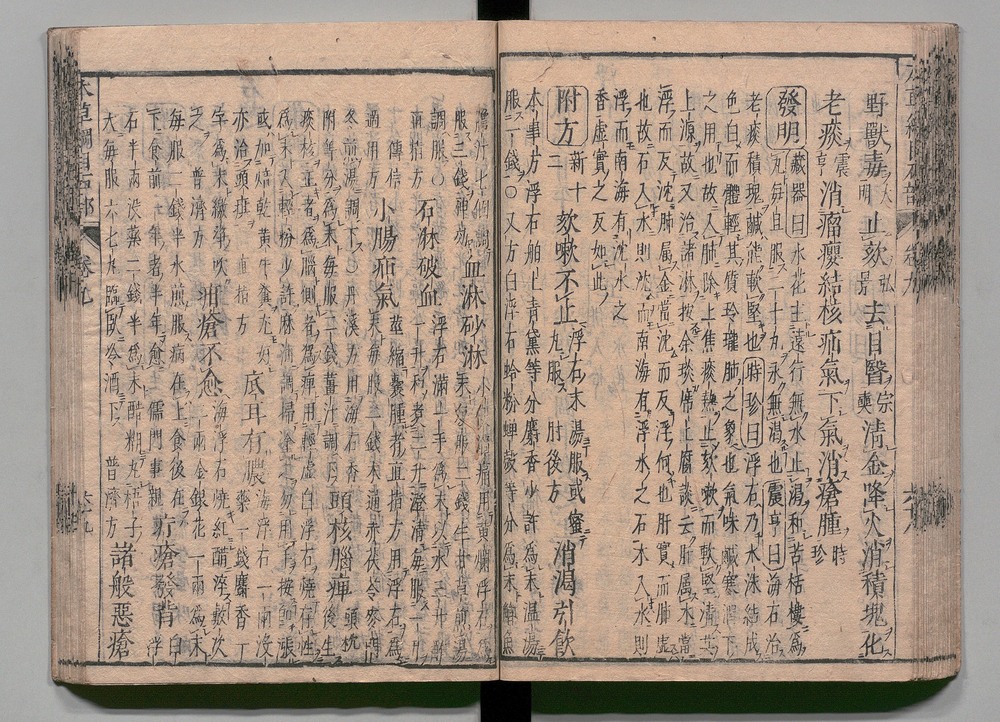 野獸毒大明止欬弘景去目翳宗奭淸金降火消積塊化
老痰震亨消瘤癭結核疝氣下氣消瘡腫時珍
發明藏器曰水花主遠行無水止渴和苦栝樓爲
丸每旦服二十丸永無渴也震亨曰海石治
老痰積塊鹹能軟堅也時珍曰浮石乃水沫結成
色白而體輕其質玲瓏肺之象也氣味鹹寒潤下
之用也故入肺除上焦痰熱止欬嗽而軟堅淸其
上源故又治諸淋按余琰席上腐談云肝屬木當
浮而反沈肺屬金當沈而反浮何也肝實而肺虛
也故石入水則沈而南海有浮水之石木入水則
浮而南海有沈水之
香虛實之反如此
附方新十二欬嗽不止浮石末湯服或蜜丸服肘後方消渴引飮
本事方浮石舶上青黛等分麝香少許爲末溫湯
服一錢○又方白浮石蛤粉蟬蛻等分爲末鯽魚
膽汁七個調服三錢神效血淋砂淋小便澁痛用黃爛浮石爲
末每服二錢生甘草煎湯
調服石淋破血浮石滿一手爲末以水三升酢
一升和煮二升澄淸每服一升
小腸疝氣莖縮囊腫者直指方用浮石爲
末每服二錢木通赤茯苓麥門
冬煎湯調下○丹溪方用海石香
附等分爲末每服二錢薑汁調下頭核腦痺頭枕後生
痰核正者爲腦側者爲痺用輕虛白浮石燒存性
爲末入輕粉少許麻油調掃塗之勿用手按即漲
或加焙乾黃牛糞尤好
亦治頭㾦直指方底耳有膿海浮石一兩沒
藥一錢麝香一
字爲末繳淨吹
之普濟方疳瘡不愈海浮石燒紅醋淬數次
二兩金銀花一兩爲末
每服二錢半水煎服病在上食後在
下食前一年者半年愈儒門事親疔瘡發背白浮
石半兩沒藥二錢半爲末醋糊丸梧子
大每服六七丸臨臥冷酒下普濟方諸般惡瘡